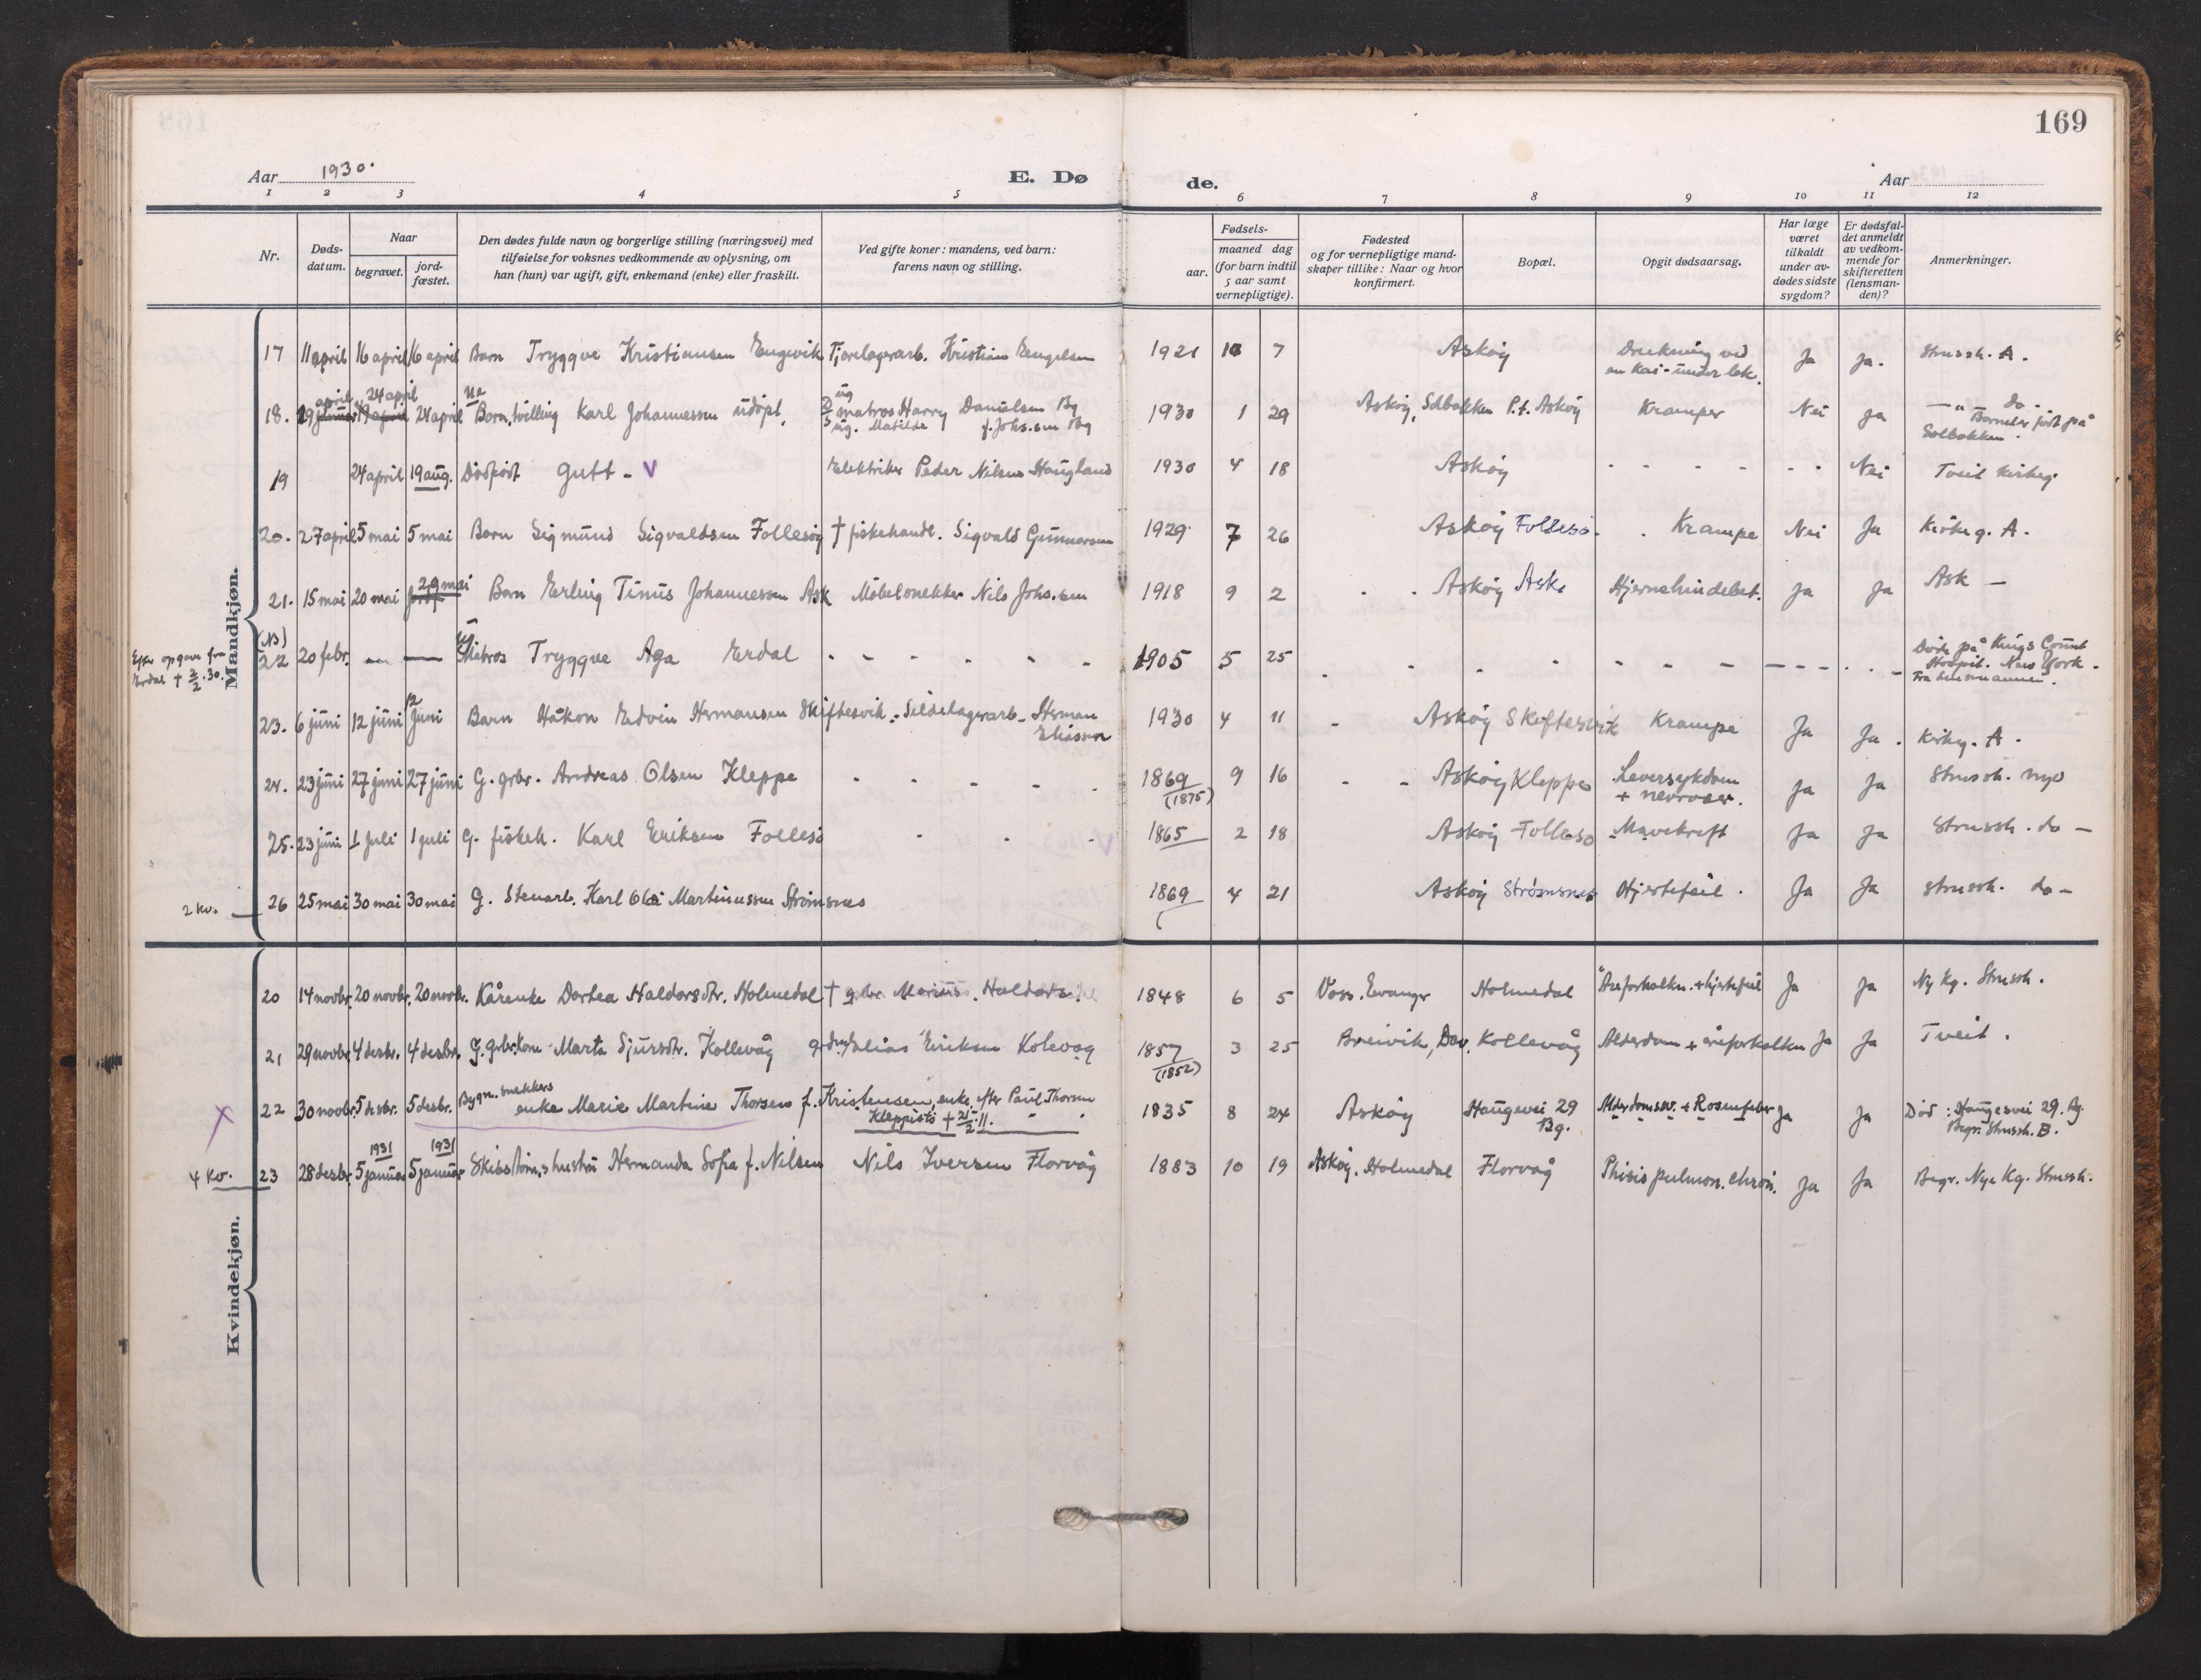 169
Aar 1930.
E. Dø de.
Aar
1 2 3 4 5 6 7 8 9 10 11 12
Nr.
Døds-
datum.
Naar
begravet.
jord-
fæstet.
Den dødes fulde navn og borgerlige stilling (næringsvei) med
tilføielse for voksnes vedkommende av oplysning, om
han (hun) var ugift, gift, enkemand (enke) eller fraskilt.
Ved gifte koner: mandens, ved barn:
farens navn og stilling.
Fødsels-
aar.
maaned dag
(for barn indtil
5 aar samt
vernepligtige).
Fødested
og for vernepligtige mand-
skaper tillike: Naar og hvor
konfirmert.
Bopæl.
Opgit dødsaarsag.
Har læge
været
tilkaldt
under av-
dødes sidste
sygdom?
Er dødsfal-
det anmeldt
av vedkom-
mende for
skifteretten
(lensman-
den)?
Anmerkninger.
Mandkjøn.
17 11 april 16 april 16 april Barn Tryggve Kristiansen Engevik Tjærelagerarb. Kristian Engelsen 1921 10 7 Askøy Drukning ved Ja Ja. Strussh. A.
en kai-under lek.
april 24 april
18. 19 24 april Barn, tvilling Karl Johannessen udöpt, matros Harry Danielsen By 1930 1 29 Askøy, Solbakken P.t. Askøy Kramper Nei Ja — " do -
ug. Matilde f. Johs.sen By Barnet er født på
Solbakken.
19 24 april 19 aug. Dødfødt gutt - V Elektriker Peder Nilsen Haugland 1930 4 18 Askøy - - - - - - Nei Tveit kirkeg.
20. 27 april 5 mai 5 mai Barn Sigmund Sigvaldsen Follesøy † fiskehandl. Sigvald Gunnarsen 1929 7 26 Askøy Follesø. Krampe Nei Ja Kirkeg. A.
21. 15 mai 20 mai 20 mai Barn Erling Tinus Johannessen Ask Møbelsnekker Nils Johs.sen 1918 9 2 Askøy Ask. Hjernehindebet. Ja Ja Ask —
(NB)
Efter opgave fra
Erdal † 2/2.30.
22 20 febr. — — Matros Tryggve Aga Erdal - - - - - 1905 5 25 - - - - - - Døde på Kings Count
Hospit. New York.
Fra lensmannen.
23. 6 juni 12 juni 12 Juni Barn Håkon Edvin Hermansen Skiftesvik. Sildelagerarb. Herman 1930 4 11 - Askøy Skiftesvik Krampe Ja Ja. Kirkg. A.
Eliassen
24. 23 juni 27 juni 27 juni G. grbr. Andreas Olsen Kleppe - - - - - 1869 9 16 - - Askøy Kleppe Leversykdom Ja Ja Strussh. nye
(1875) + nevroser.
25. 23 juni 1 Juli 1 juli G. fiskeh. Karl Eriksen Follesø - - - V 1865 2 18 Askøy Follesø Mavekreft Ja Ja Strussh. do —
2 kv. — 26 25 mai 30 mai 30 mai G. Stenarb. Karl Olai Martinussen Strømsnes 1869 4 21 Askøy Strømsnes Hjertefeil. Ja Ja Strussh. do —
Kvindekjøn.
20 14 novbr. 20 novbr. 20 novbr. Kårenke Dortea Haldorsdtr. Holmedal † gbr. Marius Haldors. 1848 6 5 Voss. Evanger Holmedal Åreforkalkn. + hjertefeil Ja Ja Ny Kg. Strussh.
21 29 novbr. 4 desbr. 4 desbr. G. grbr.kone Marta Sjursdtr. Kollevåg Elias Eriksen Kolevog 1857 3 25 Breivik, Kollevåg Alderdom + åreforkalkn Ja Ja Tveit.
(1852)
X 22 30 novbr. 5 desbr. 5 desbr. Bygn. snekkers
enke Marie Martine Thorsen f. Kristensen, enke efter Paul Thorsen 1835 8 24 Askøy Haugevei 29 Alderdomssv. + Rosenfeber Ja Ja Död: Haugesvei 29. By.
Kleppestö † 21/2.11. " Bg. Begr. Strussh. B.
1931 1931
4 kv. 23 28 desbr. 5 januar 5 januar Skibstöm.s hustru Hermanda Sofia f. Nilsen Nils Iversen Florvåg 1883 10 19 Askøy. Holmedal Florvåg Phisis pulmon. chron. Ja Ja Begr. Nye Kg. Strussh.